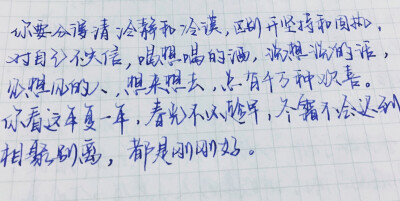 你要分得清冷静和冷漠，区别开坚持和固执，
对自己不失信，喝想喝的酒，说想说的话，
见想见的人，想来想去，点百千万种欢喜。
你看这年复一年，春光不必趁早，冬霜不会迟到
相聚别离，都是刚刚好。